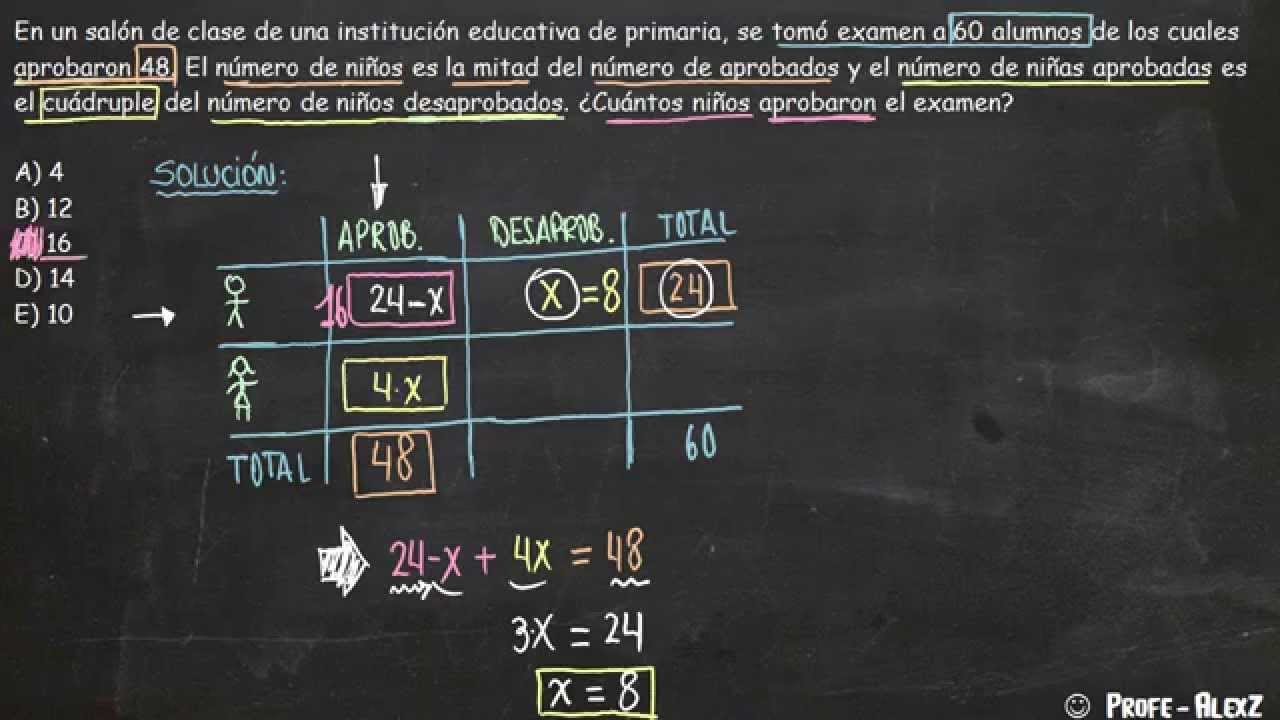 En un salón de clase de una institución educativa de primaria, se tomó examen a 60 alumnos de los cuales
aprobaron 48. El número de niños es la mitad del número de aprobados y el número de niñas aprobadas es
el cuádruple del número de niños desaprobados. ¿Cuántos niños aprobaron el examen?
A) 4
B) 12
16
D) 14
E) 10
SOLUCIÓN:
APROB. DESAPROB. TOTAL
16 24-x x =8 24
4·x
TOTAL 48 60
24-x + 4x = 48
3·x = 24
x = 8
PROFE - ALEXZ